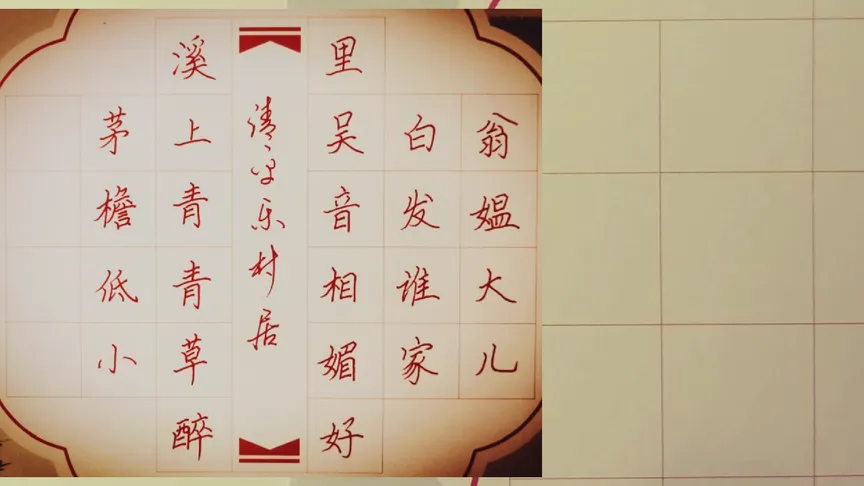 清平乐村居
茅檐低小
溪上青青草醉
里吴音相媚好
白发谁家
翁媪大儿